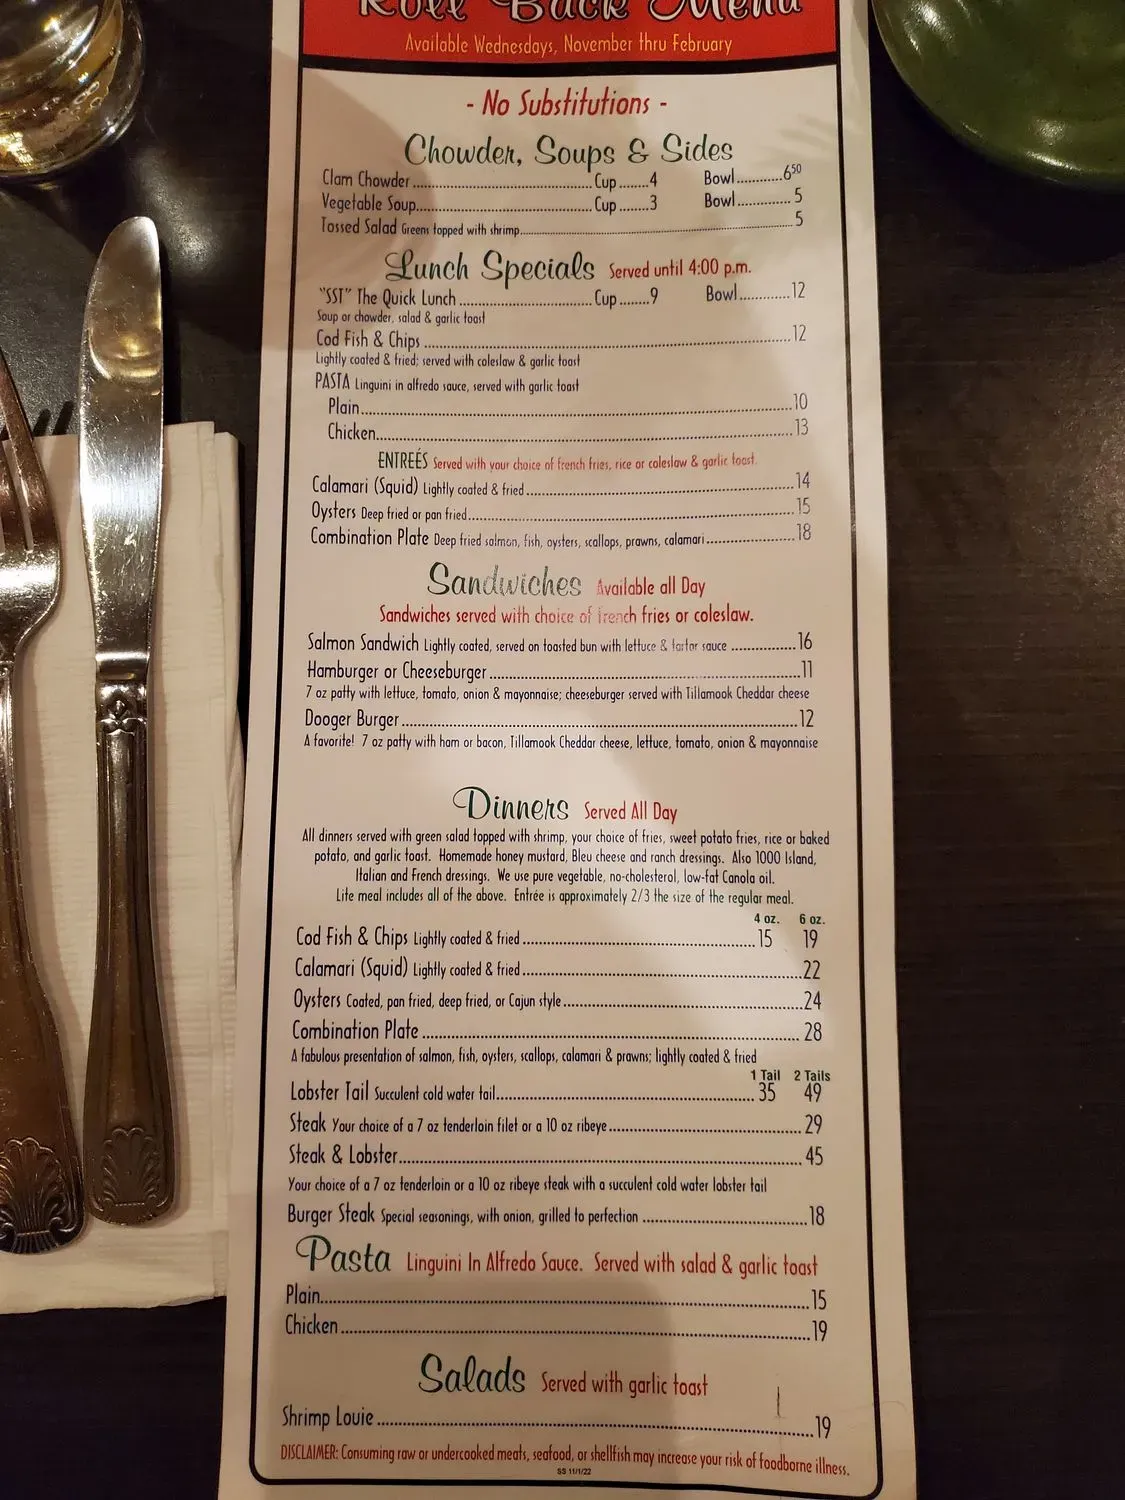 Roll Back Menu
Available Wednesdays, November thru February
- No Substitutions -
Chowder, Soups & Sides
Clam Chowder Cup 4 Bowl 6⁵⁰
Vegetable Soup Cup 3 Bowl 5
Tossed Salad Greens topped with shrimp 5
Lunch Specials Served until 4:00 p.m.
"SST" The Quick Lunch Cup 9 Bowl 12
Soup or chowder, salad & garlic toast
Cod Fish & Chips 12
Lightly coated & fried; served with coleslaw & garlic toast
PASTA Linguini in alfredo sauce, served with garlic toast
Plain 10
Chicken 13
ENTREÉS Served with your choice of french fries, rice or coleslaw & garlic toast.
Calamari (Squid) Lightly coated & fried 14
Oysters Deep fried or pan fried 15
Combination Plate Deep fried salmon, fish, oysters, scallops, prawns, calamari 18
Sandwiches Available all Day
Sandwiches served with choice of french fries or coleslaw.
Salmon Sandwich Lightly coated, served on toasted bun with lettuce & tartar sauce 16
Hamburger or Cheeseburger 11
7 oz patty with lettuce, tomato, onion & mayonnaise; cheeseburger served with Tillamook Cheddar cheese
Dooger Burger 12
A favorite! 7 oz patty with ham or bacon, Tillamook Cheddar cheese, lettuce, tomato, onion & mayonnaise
Dinners Served All Day
All dinners served with green salad topped with shrimp, your choice of fries, sweet potato fries, rice or baked
potato, and garlic toast. Homemade honey mustard, Bleu cheese and ranch dressings. Also 1000 Island,
Italian and French dressings. We use pure vegetable, no-cholesterol, low-fat Canola oil.
Lite meal includes all of the above. Entrée is approximately 2/3 the size of the regular meal.
4 oz. 6 oz.
Cod Fish & Chips Lightly coated & fried 15 19
Calamari (Squid) Lightly coated & fried 22
Oysters Coated, pan fried, deep fried, or Cajun style 24
Combination Plate 28
A fabulous presentation of salmon, fish, oysters, scallops, calamari & prawns; lightly coated & fried
1 Tail 2 Tails
Lobster Tail Succulent cold water tail 35 49
Steak Your choice of a 7 oz tenderloin filet or a 10 oz ribeye 29
Steak & Lobster 45
Your choice of a 7 oz tenderloin or a 10 oz ribeye steak with a succulent cold water lobster tail
Burger Steak Special seasonings, with onion, grilled to perfection 18
Pasta Linguini In Alfredo Sauce. Served with salad & garlic toast
Plain 15
Chicken 19
Salads Served with garlic toast
Shrimp Louie 19
DISCLAIMER: Consuming raw or undercooked meats, seafood, or shellfish may increase your risk of foodborne illness.
SS 11/1/22